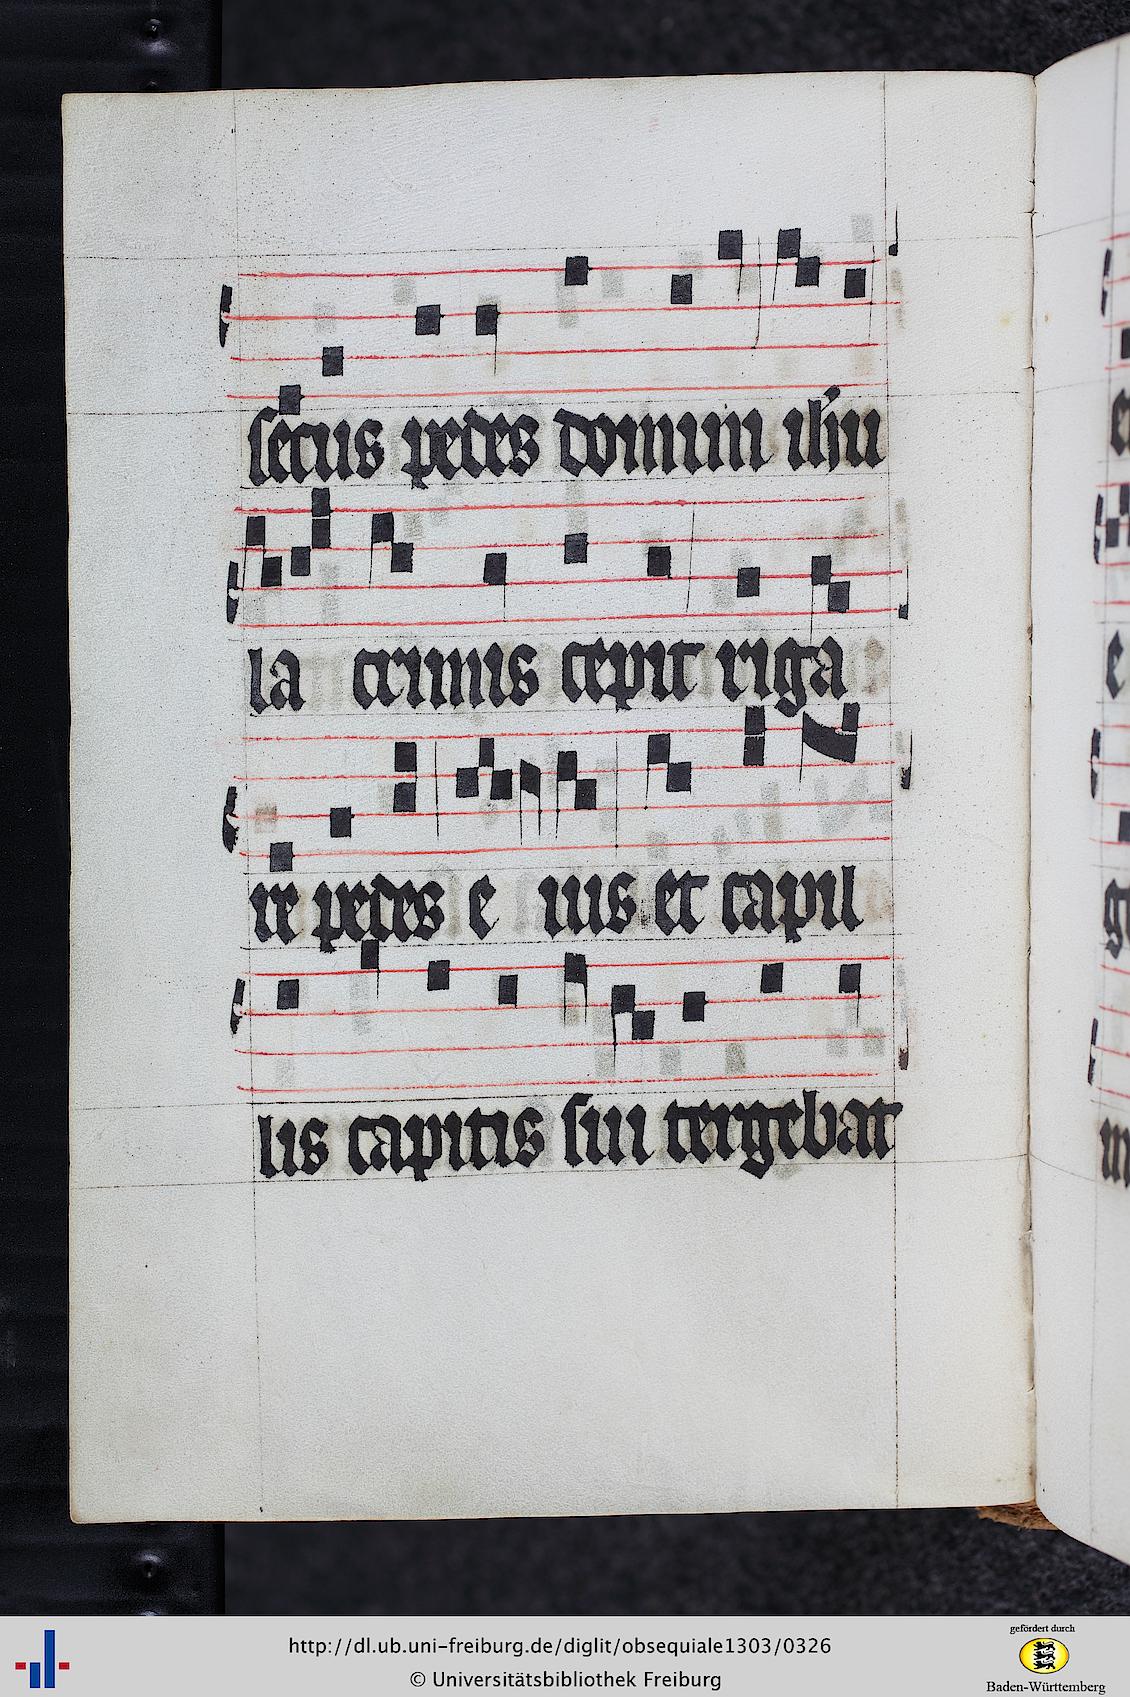 secus pedes domini ihu
la crimis cepit riga
re pedes e ius et capil
lis capitis sui tergebat
http://dl.ub.uni-freiburg.de/diglit/obsequiale1303/0326
© Universitätsbibliothek Freiburg
gefördert durch
Baden-Württemberg